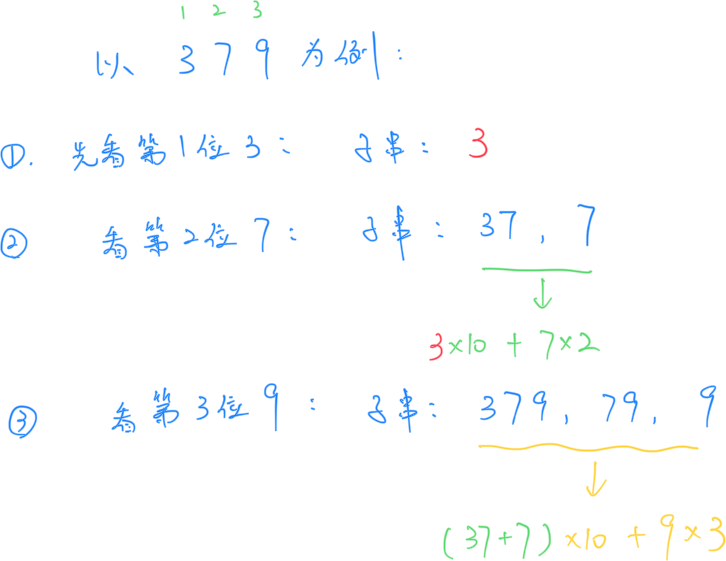 1 2 3
以 3 7 9 为例:
①. 先看第1位3: 子串: 3
② 看第2位7: 子串: 37, 7
3×10 + 7×2
③ 看第3位9: 子串: 379, 79, 9
(37+7)×10 + 9×3